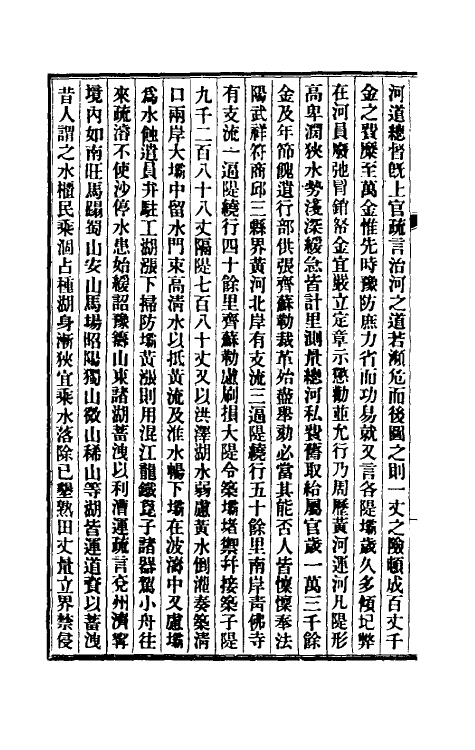 河道總督旣上官疏言治河之道若瀕危而後圖之則一丈之險頓成百丈千
金之費糜至萬金惟先時豫防庶力省而功易就又言各隄壩歲久多傾圮弊
在河員廢弛冒銷帑金宜嚴立定章示懲勸並允行乃周歷黃河運河凡隄形
高卑濶狹水勢淺深緩急皆計里測量總河私費舊取給屬官歲一萬三千餘
金及年節餽遺行部供張齊蘇勒裁革始盡舉劾必當其能否人皆懍懍奉法
陽武祥符商邱三縣界黃河北岸有支流三逼隄繞行五十餘里南岸靑佛寺
有支流一逼隄繞行四十餘里齊蘇勒慮刷損大隄令築壩堵禦幷接築子隄
九千二百八十八丈隔隄七百八十丈又以洪澤湖水弱慮黃水倒灌奏築淸
口兩岸大壩中留水門束高淸水以抵黃流及淮水暢下壩在波濤中又慮壩
爲水蝕遣員弁駐工湖漲下埽防壩黃漲則用混江龍鐵篦子諸器駕小舟往
來疏濬不使沙停水患始緩詔豫籌山東諸湖蓄洩以利漕運疏言兗州濟寧
境內如南旺馬蹋蜀山安山馬場昭陽獨山微山稀山等湖皆運道資以蓄洩
昔人謂之水櫃民乘涸占種湖身漸狹宜乘水落除已墾熟田丈量立界禁侵